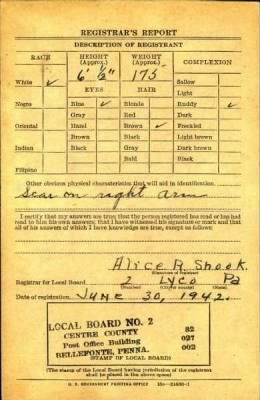 REGISTRAR'S REPORT
DESCRIPTION OF REGISTRANT
RACE HEIGHT (Approx.) WEIGHT (Approx.) COMPLEXION
White ✓ 6' ½" 175 Sallow
EYES HAIR Light
Negro Blue ✓ Blonde Ruddy ✓
Gray Red Dark
Oriental Hazel Brown ✓ Freckled
Brown Black Light brown
Indian Black Gray Dark brown
Bald Black
Filipino
Other obvious physical characteristics that will aid in identification
Scar on right arm
I certify that my answers are true; that the person registered has read or has had
read to him his own answers; that I have witnessed his signature or mark and that
all of his answers of which I have knowledge are true, except as follows:
Alice R. Shook.
(Signature of registrar)
Registrar for Local Board 2 Lyco Pa
(Number) (City or county) (State)
Date of registration June 30, 1942.
LOCAL BOARD NO. 2 82
CENTRE COUNTY 027
Post Office Building 002
BELLEFONTE, PENNA.
(STAMP OF LOCAL BOARD)
(The stamp of the Local Board having jurisdiction of the registrant
shall be placed in the above space.)
U. S. GOVERNMENT PRINTING OFFICE